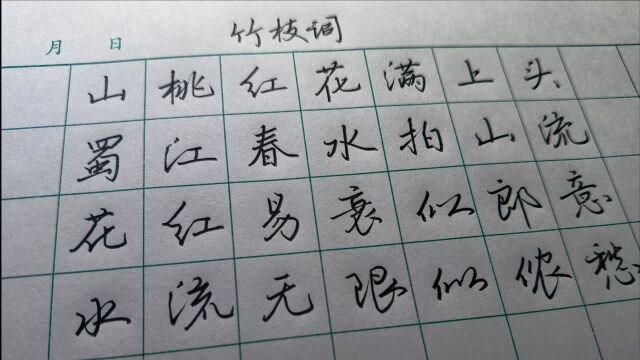 竹枝词
月 日
山桃红花满上头
蜀江春水拍山流
花红易衰似郎意
水流无限似侬愁